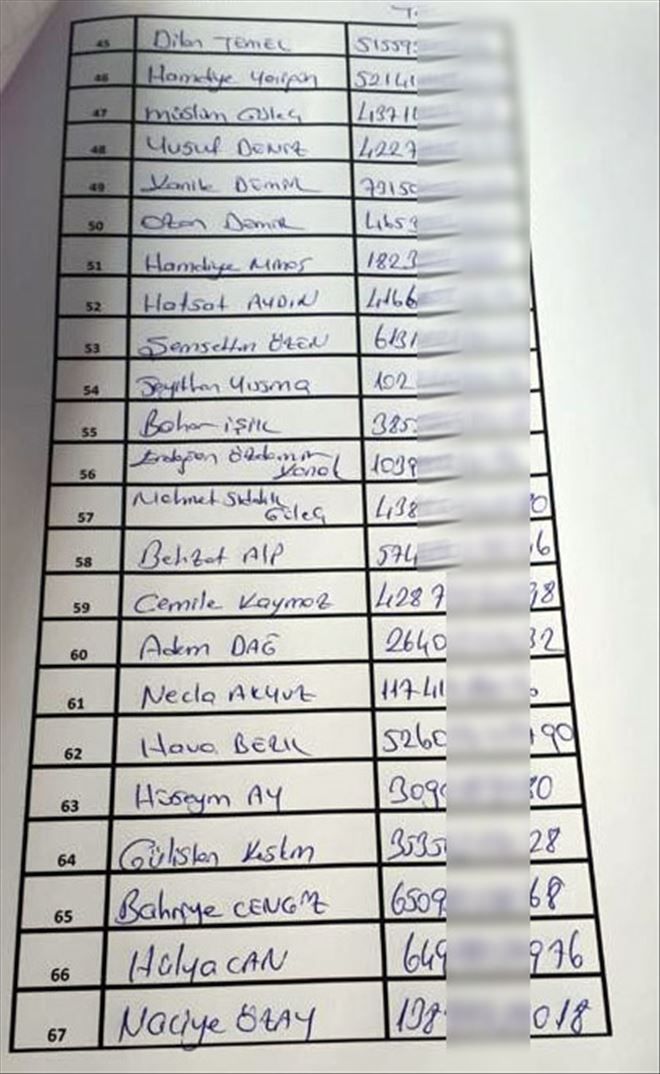 T.
45 Dilan TEMEL 51559
46 Hamdiye Yargın 52141
47 Müslüm Güleç 43711
48 Yusuf DENİZ 4227
49 DEMİR 79150
50 Ozan Demir 4653
51 Hamdiye 1823
52 Hatsat AYDIN 4166
53 Şemsettin ÖZEN 6131
54 Seyithan Yusma 102
55 Bahar IŞIK 385
56 Erdoğan Özdemir 1039
57 Mehmet Sıddık
Güleç 438 0
58 Behzat Alp 574 6
59 Cemile Kaymaz 4287 98
60 Adem DAĞ 2640 32
61 Necla AKYUZ 11741
62 Hava BERK 5260 90
63 Hüseyin AY 309 80
64 Gülistan Keskin 3535 28
65 Bahriye CENGİZ 6509 68
66 Hülya CAN 649 976
67 Naciye ÖZAY 138 018